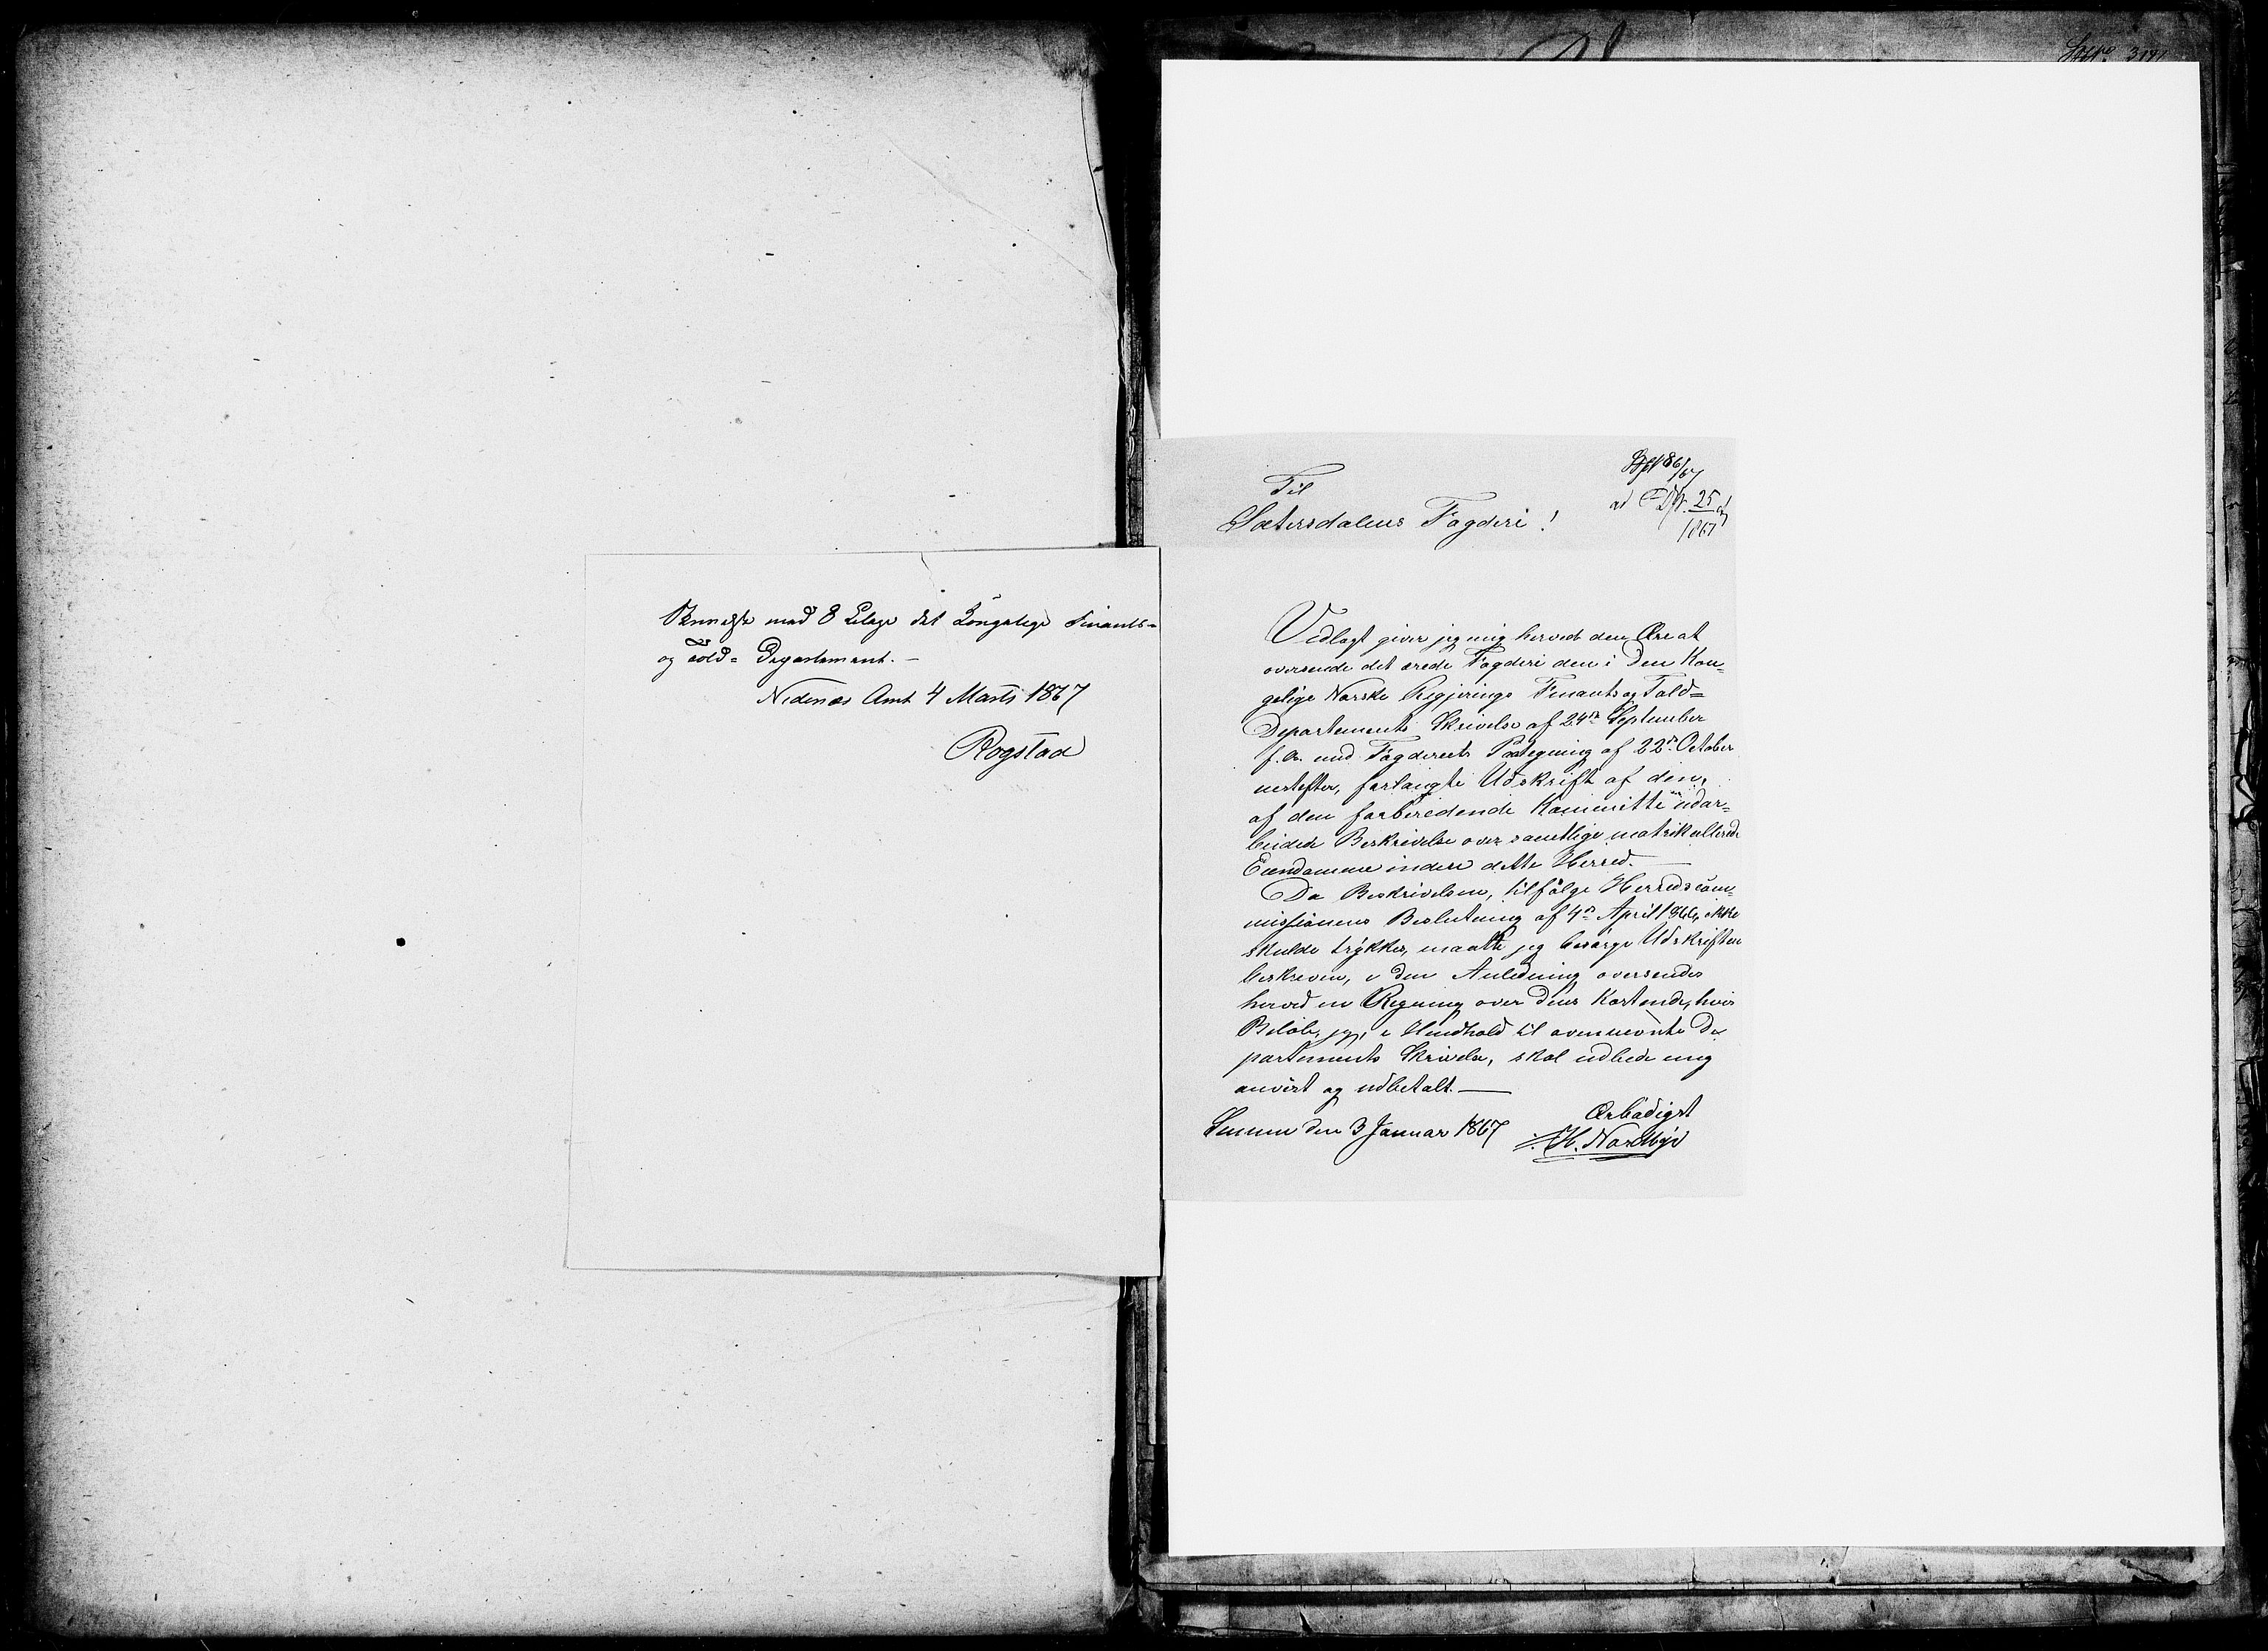 Tilstilles med 8 Bilage det Kongelige Finants-
og Told- Departement. –
Nedenæs Amt 4 Marts 1867
Rogstad
Til
Sætersdalens Fogderi!
86/67
ad Dpt. 25
1867
Vedlagt giver jeg mig herved den Ære at
oversende det ærede Fogderi den i Den Kon-
gelige Norske Regjerings Finants og Told=
Departements Skrivelse af 24de September
f. A. med Fogderiets Paategning af 22de October
nestefter, forlangte Udskrift af den,
af den forberedende Kommitte udar=
beidede Beskrivelse over samtlige matrikullerede
Eiendomme inden dette Herred. —
Da Beskrivelsen, tilfølge Herredscom-
missionens Beslutning af 4de April 1866, ikke
skulde trykkes, maatte jeg besørge Udskriften
beskreven, i den Anledning oversendes
herved en Regning over dens Kostende, hvis
Beløb, jeg, i Henhold til ovennevnte De
partements Skrivelse, skal udbede mig
anvist og udbetalt. —
den 3 Januar 1867
Ærbødigst
H. Nordbye